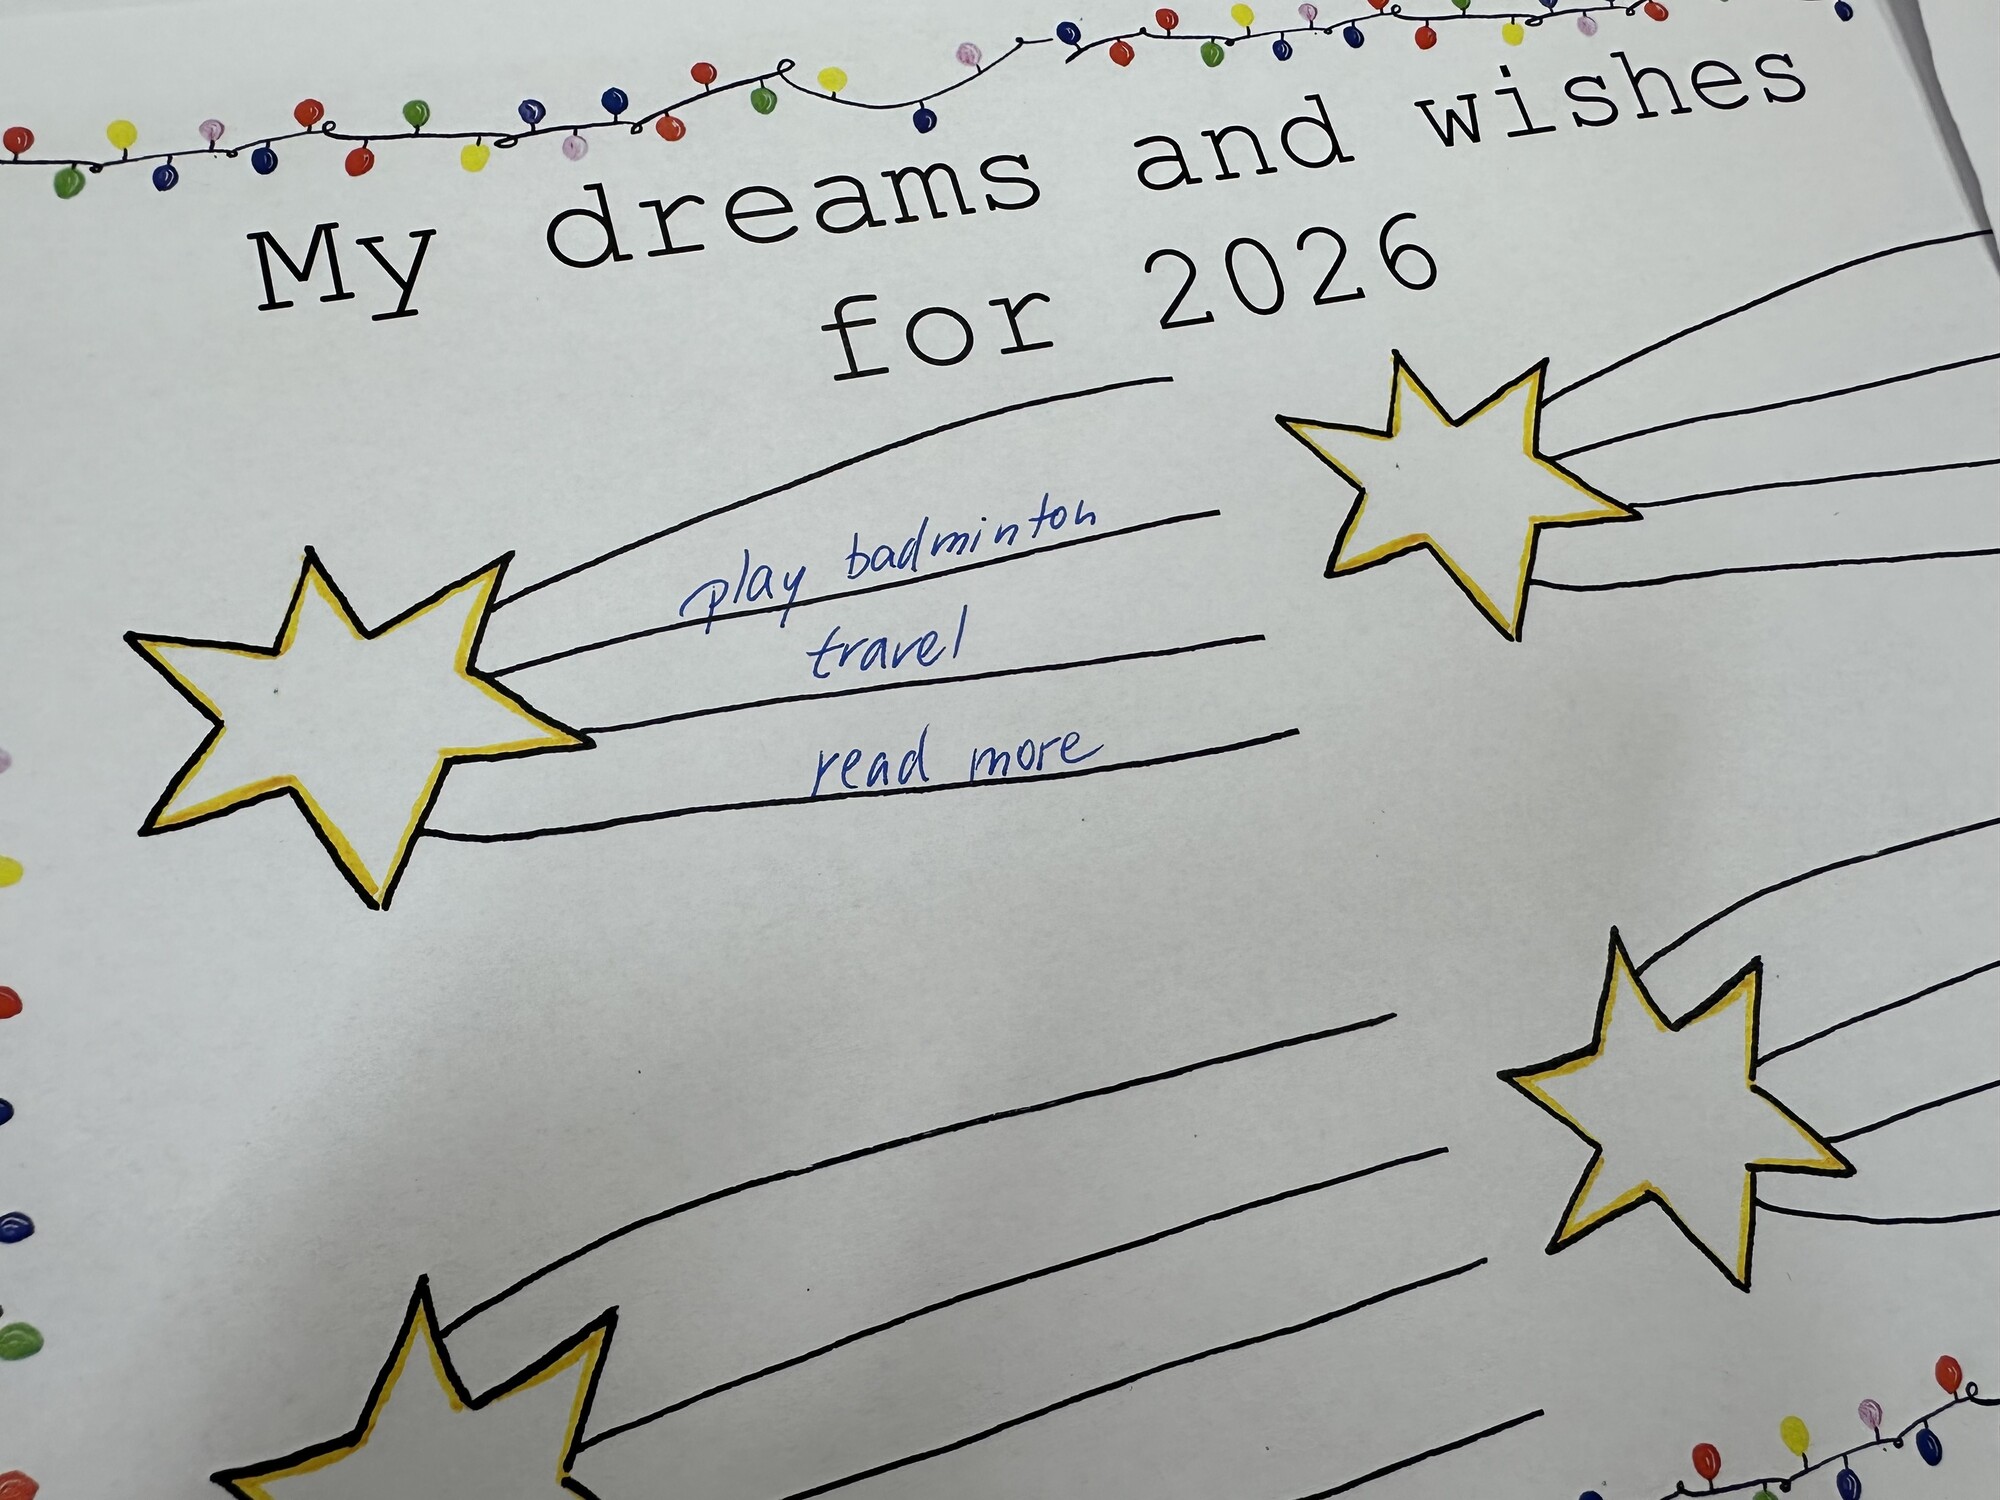 My dreams and wishes
for 2026
play badminton
travel
read more